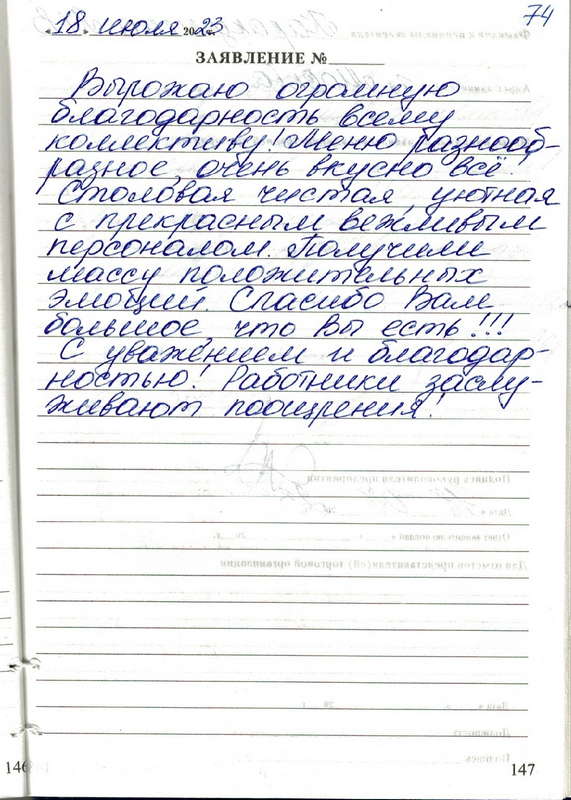 74
"18" июля 2023 г.
ЗАЯВЛЕНИЕ №
Вырожаю огромную
благодарность всему
коллективу! Меню разнооб-
разное, очень вкусно всё.
Столовая чистая, уютная
с прекрасным вежливым
персоналом. Получили
массу положительных
эмоций. Спасибо Вам
большое, что Вы есть!!!
С уважением и благодар-
ностью! Работники заслу-
живают поощрения!
146
147